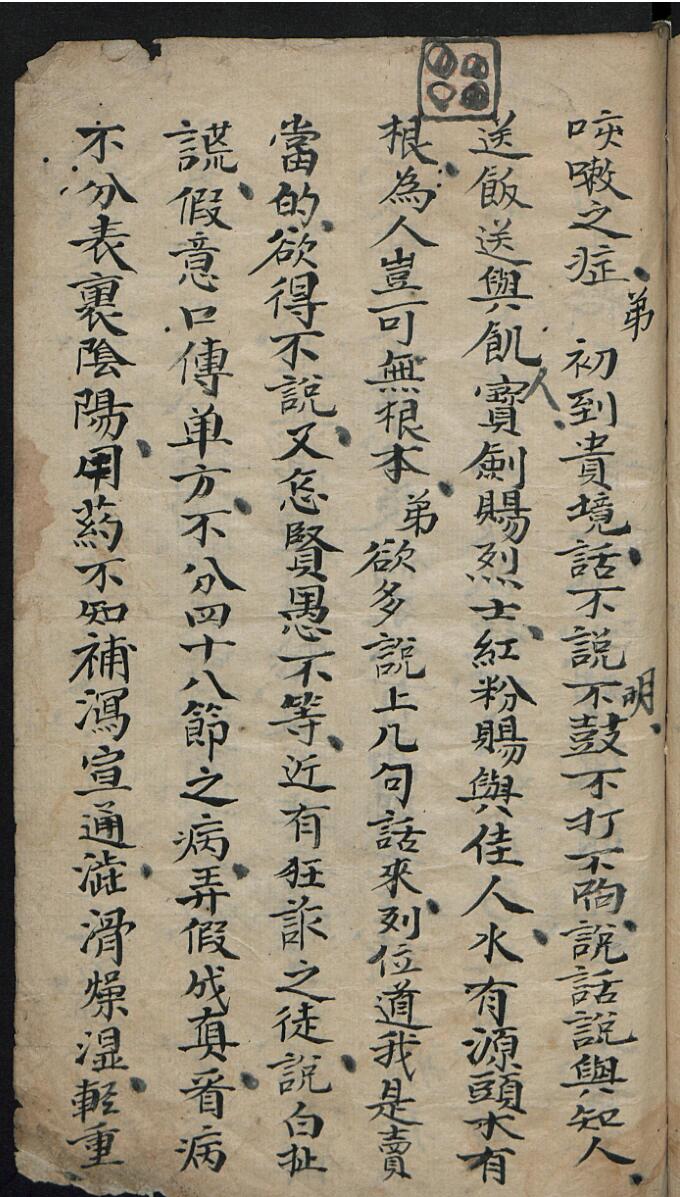 咳嗽之症弟初到貴境話不說不明鼓不打不响說話說與知人
送飯送與飢人寶劍賜烈士紅粉賜與佳人水有源頭木有
根為人豈可無根本弟欲多說上几句話來列位道我是賣
當的欲得不說又恐賢愚不等近有狂詐之徒說白扯
謊假意口傳单方不分四十八節之病弄假成真看病
不分表裏陰陽用葯不知補瀉宣通澁滑燥湿輕重